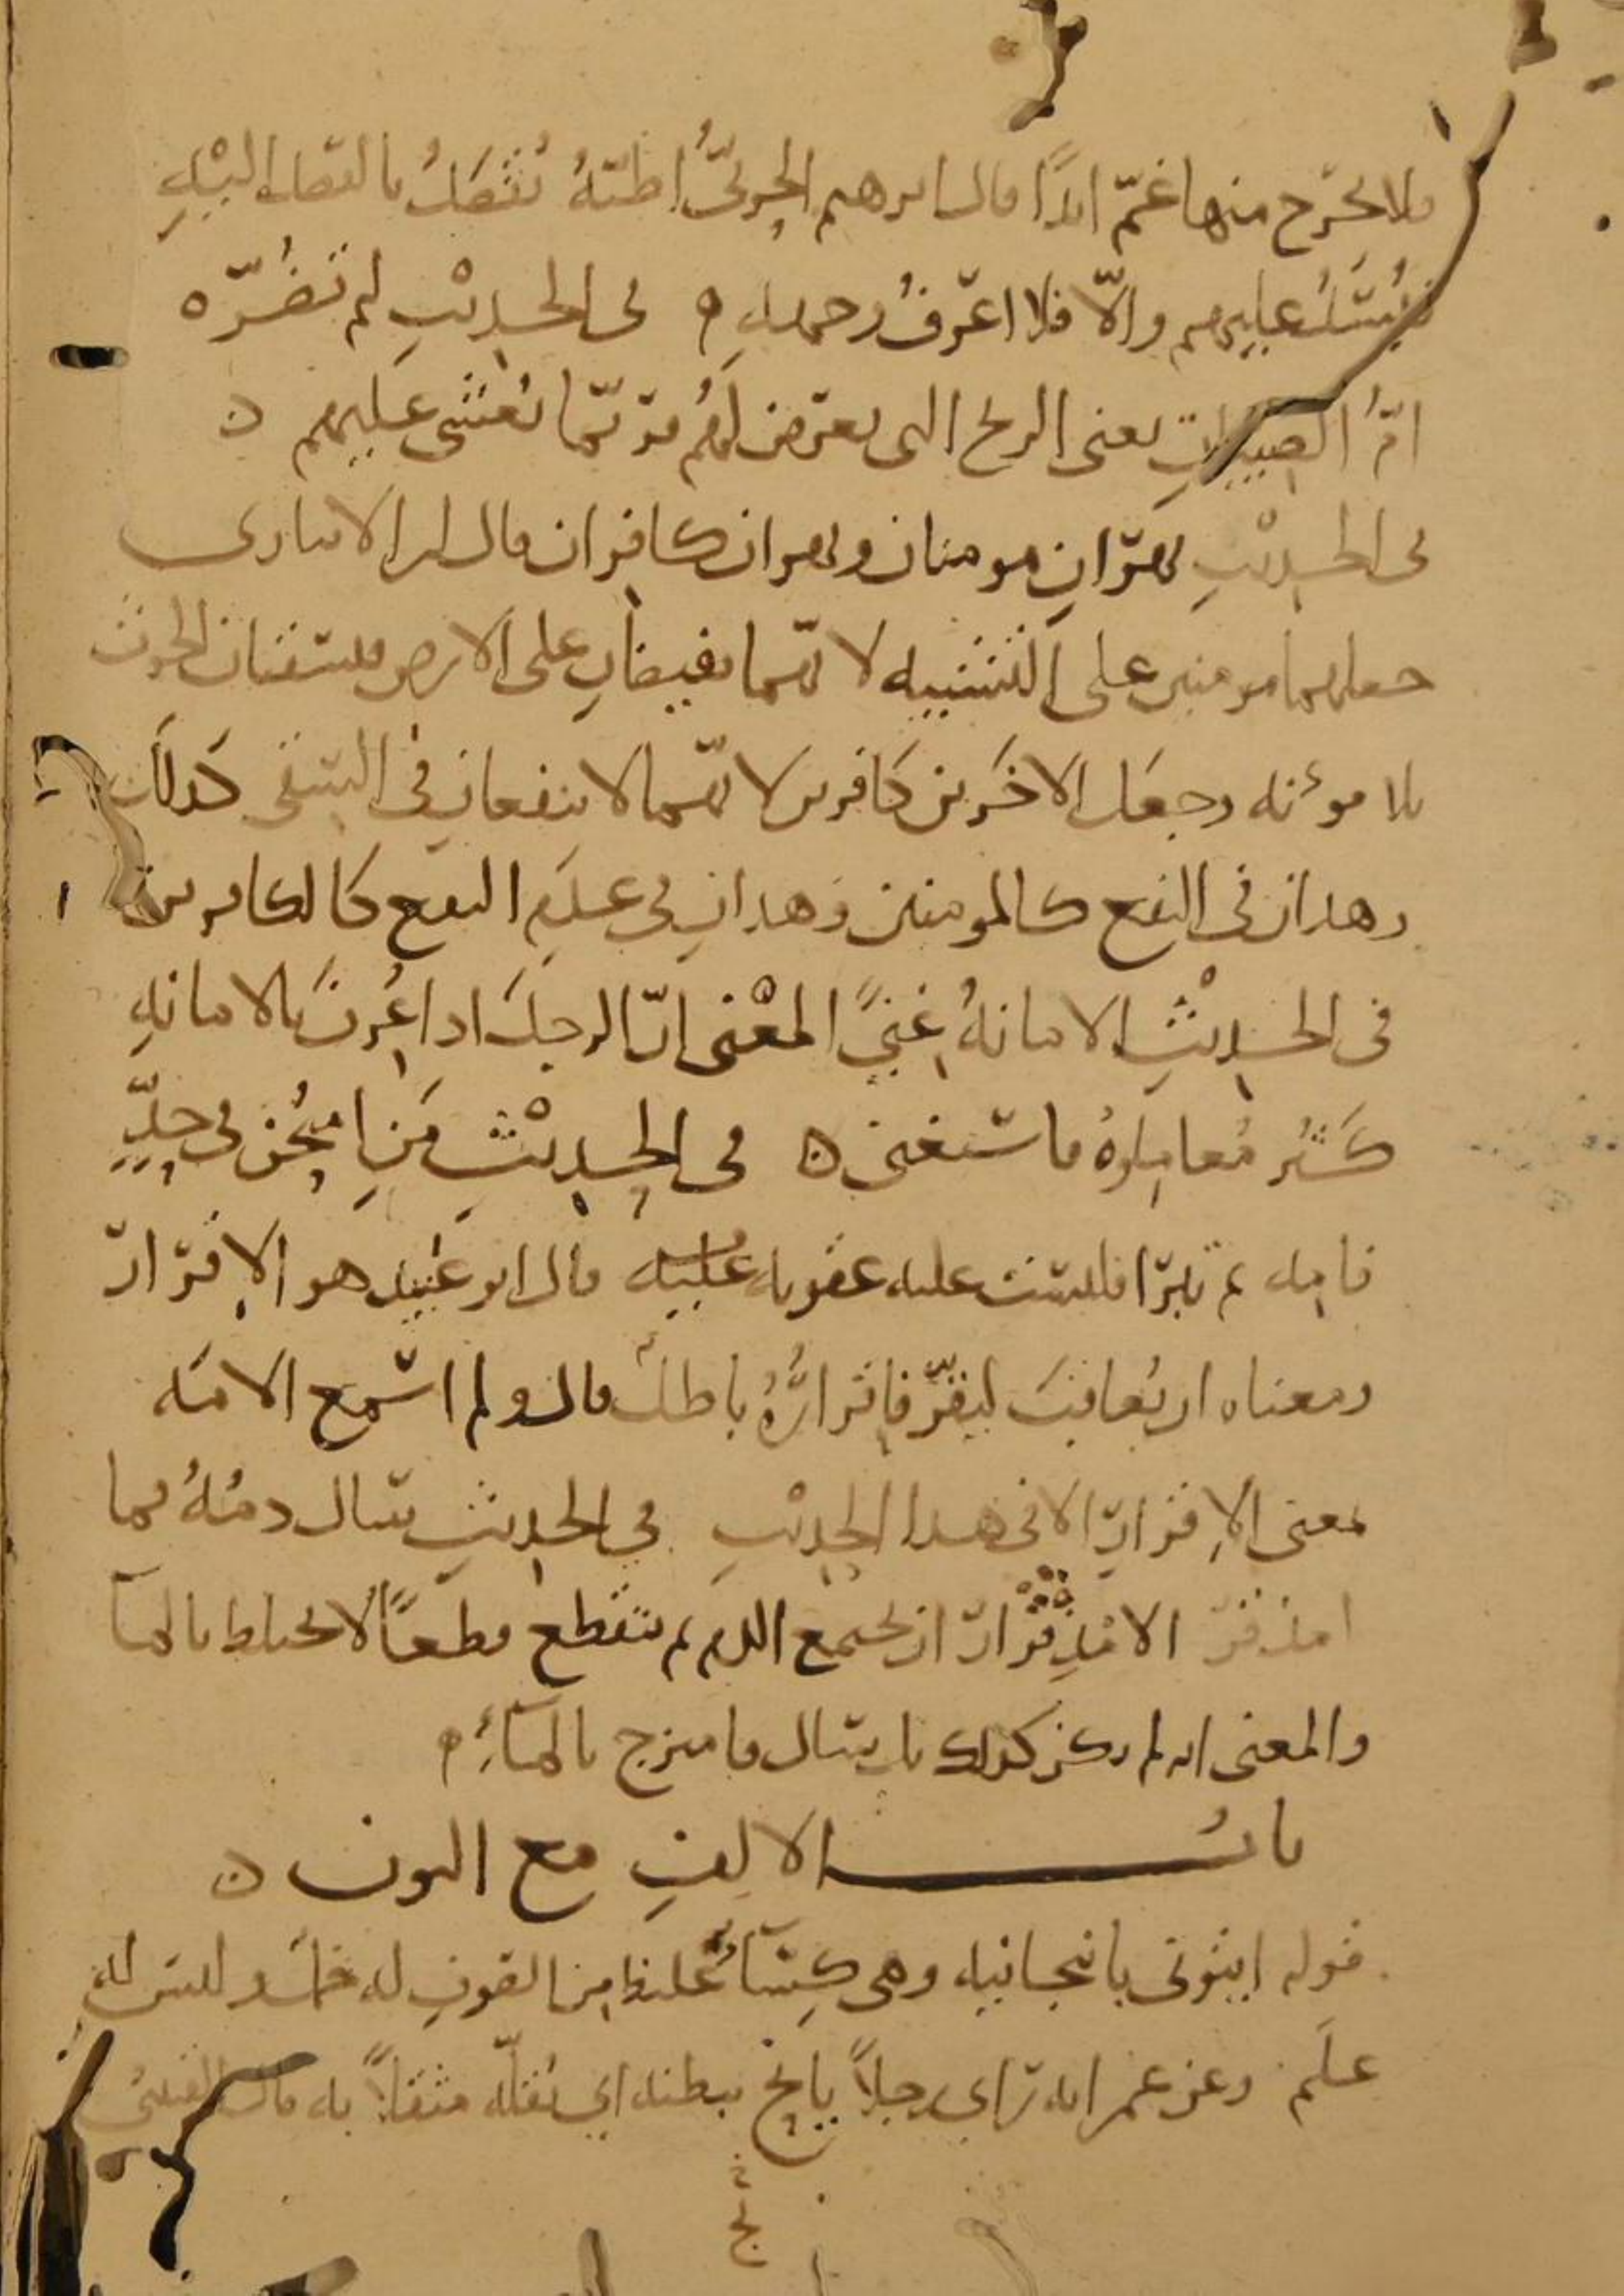 فلا يخرج منها غمّ ابدًا قال ابرهيم الحربىُّ اظنّهُ تُفْصَلُ بالقصل اليْهِ
فيُسَدُّ عليهم والّا فلا اعرفُ وجهه ٥ فى الحديْثِ لم تضُرّه
امُّ الصبيانِ يعنى الريح التى تعرض لهُم فربّما يُغشى عليهم ه
فى الحديْثِ نهرَانِ مومنان ونهران كافران قال ابن الانبارى
جعلهما مومنين على التشبيه لانّهما يفيضانِ على الارض فيسقيان الحرث
بلا موءنه وجعَل الاخَرين كافرين لانّهما لا ينفعانِ فى السقى كذلك
وهذان فى النفع كالمومنين وَهذانِ فى عدَم النفع كالكافرين
فى الحديْثِ الامانهُ غِنًى المعْنى انّ الرجلَ اذا عُرِفَ بالامانهِ
كَثُر مُعامِلوهُ فاستغنى ه فى الحِديْثِ مَنِ امتُحِن فى حِدٍّ
فامِه ثم تبرّا فليست عليه عقوبه عليه قال ابو عُبيد هو الاِقرار
ومعناه ان يُعاقبَ ليقرّ فاِقرارُهُ باطل قال ولم اسمع الامَه
بمعنى الاِقرار الا فى هذا الحِديْثِ فى الحديثِ سال دمُهُ فما
امذقرّ الامذِقرار ان يجتمع الدم ثم يتقطع قطعًا لا يختلط بالماَ
والمعنى انه لم يكن كذلك بل سال فامتزج بالمآءِ ٥
بابُ الالفِ مع النون ه
قوله ايتونى بانبجانيه وهى كِسآءٌ غليظ مِن الصوفِ له خَملٌ وليس له
علَم وعن عمر انه رَاى رجلاً يانِح ببطنه اى يُقلّه مثقلاً به قال القتيبى
نح